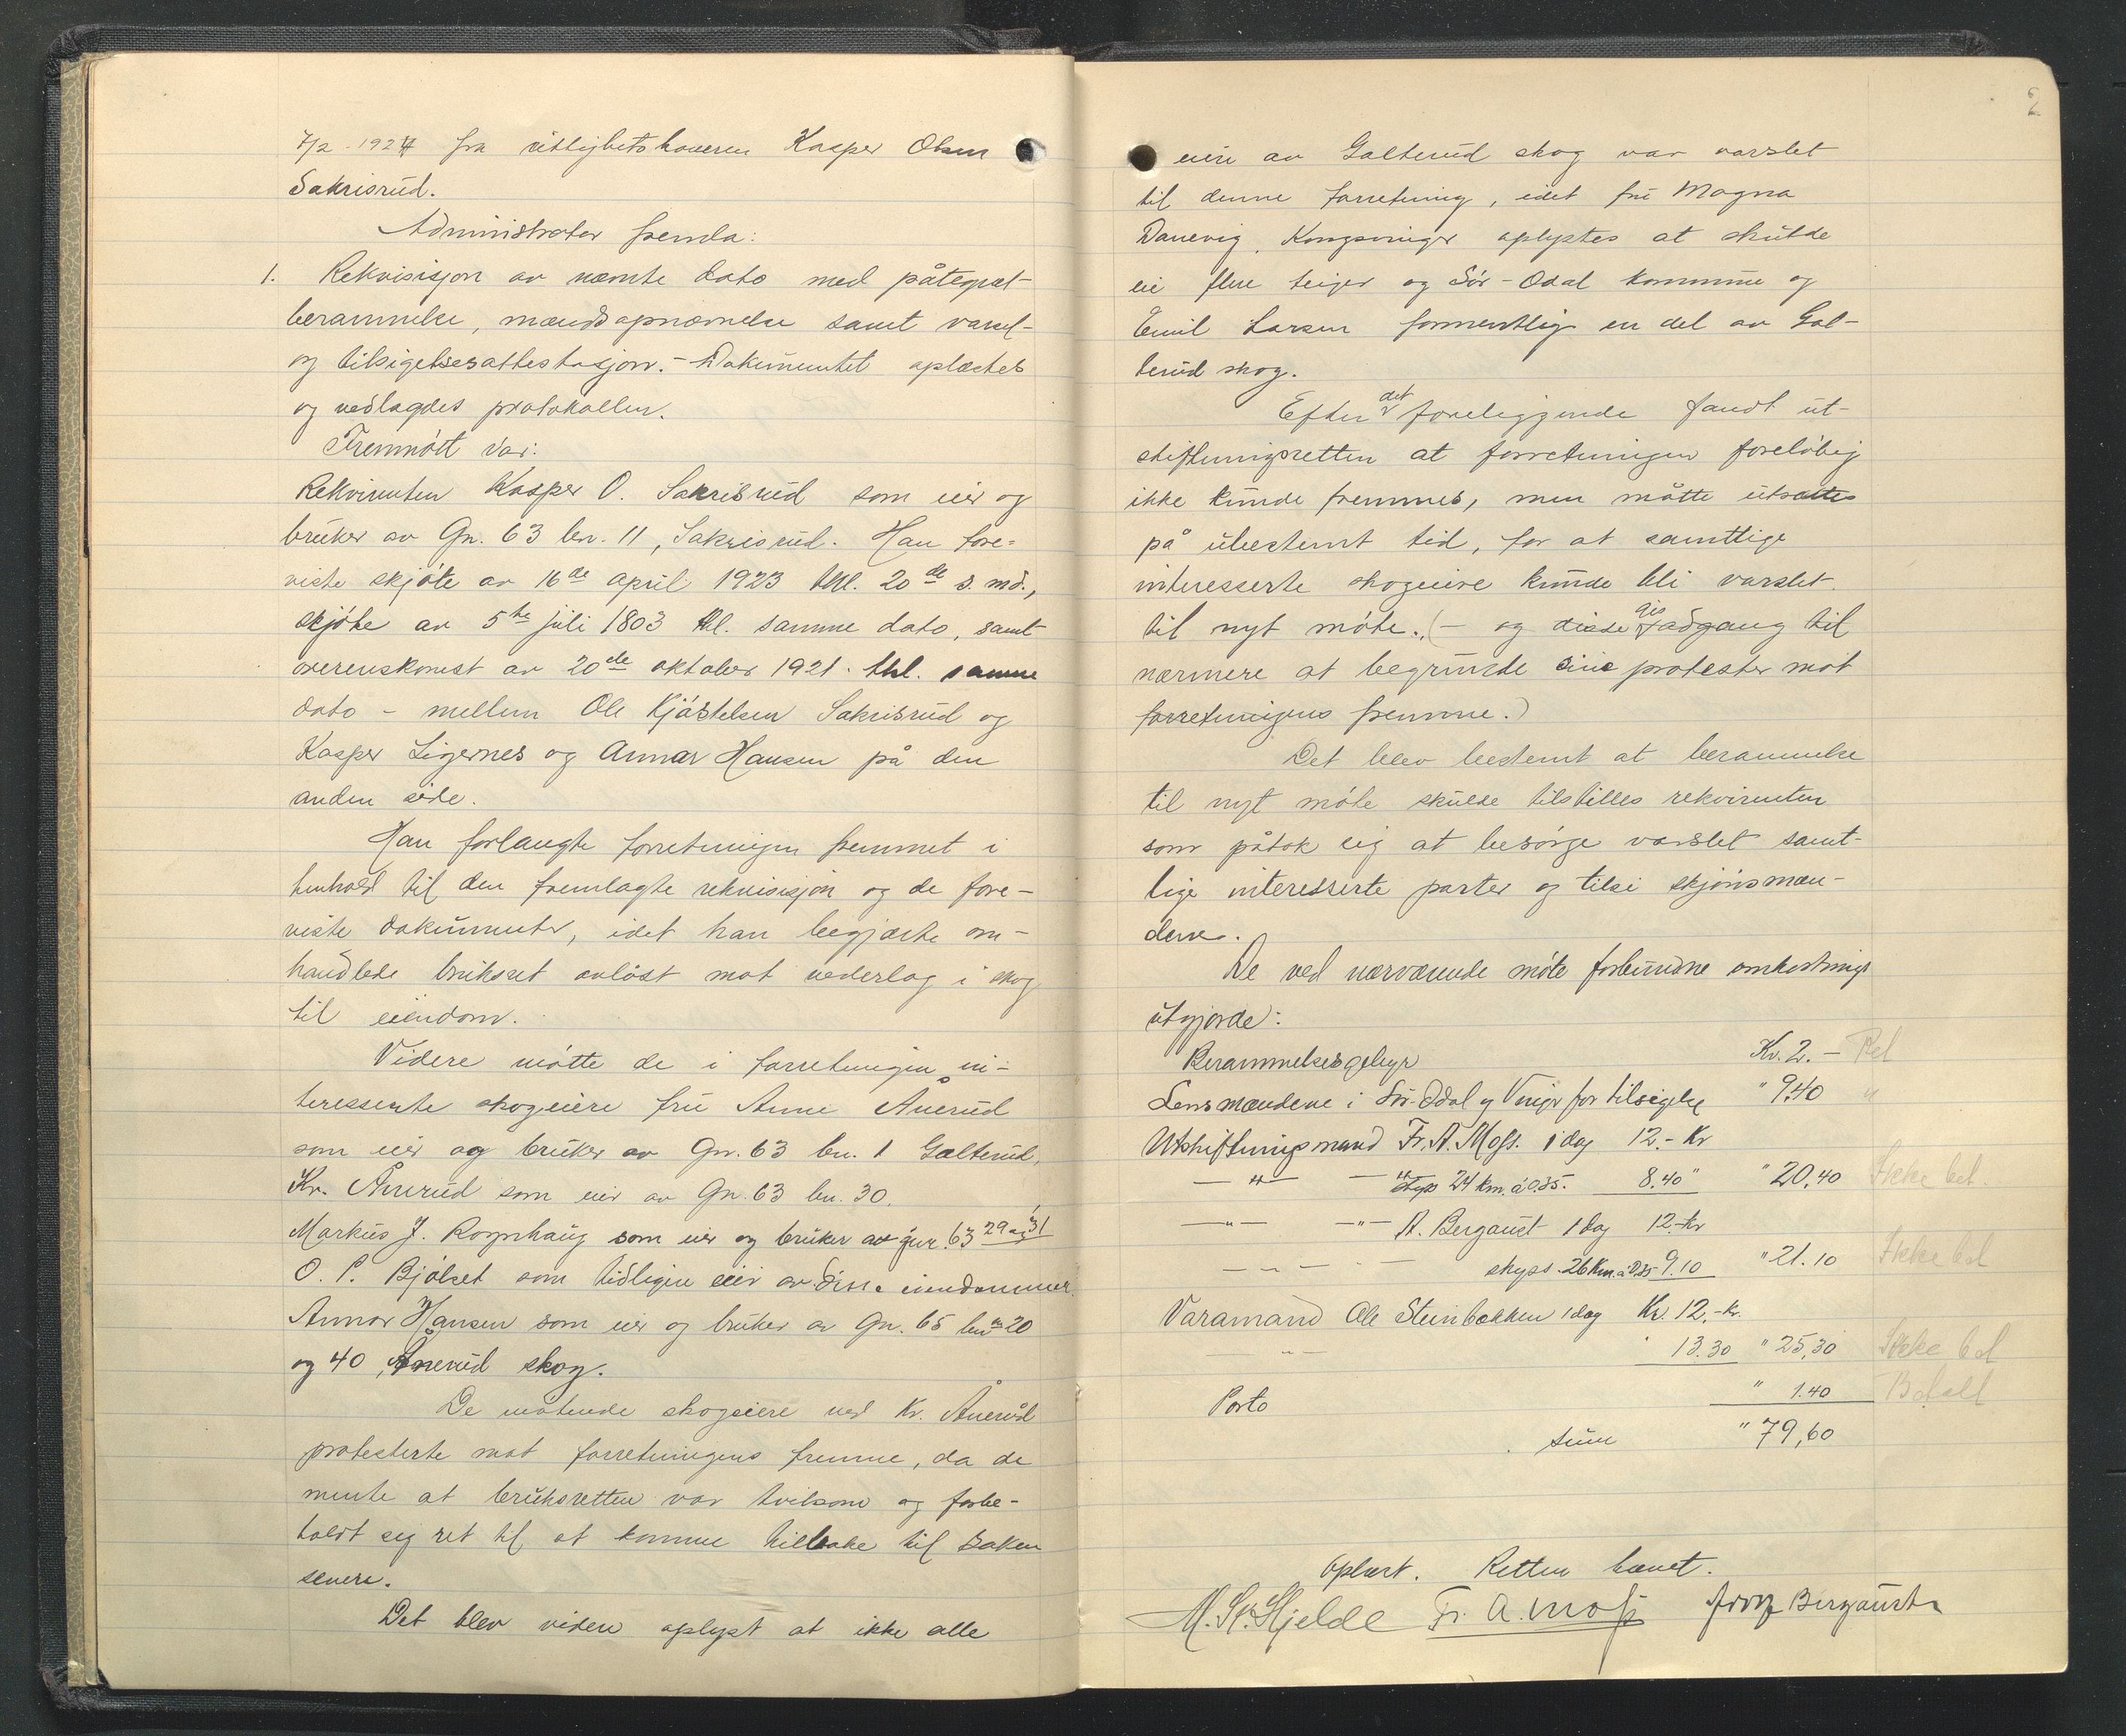 7/2 - 1924 fra rettighetshaveren Kasper Olsen
Sakrisrud.
Administrator fremla:
1. Rekvisisjon av nævnte dato med påtegnet
berammelse, mændsopnævnelse samt varsel-
og tilsigelsesattestasjon. - Dokumentet oplæstes
og vedlagdes protokollen.
Fremmött var:
Rekvirenten Kasper O. Sakrisrud som eier og
bruker av Gn. 63 bn. 11, Sakrisrud. Han fore-
viste skjöte av 16de april 1923 thl. 20de s. md.,
skjöte av 5te juli 1803 thl. samme dato, samt
overenskomst av 20de oktober 1921. thl. samme
dato - mellem Ole Kjöstelsen Sakrisrud og
Kasper Ligernes og Annar Hansen på den
anden side.
Han forlangte forretningen fremmet i
henhold til den fremlagte rekvisisjon og de fore-
viste dokumenter, idet han begjærte om-
handlede bruksret avlöst mot vederlag i skog
til eiendom.
Videre mötte de i forretningen in-
teresserte skogeiere fru Anne Ånerud
som eier og bruker av Gn. 63 bn. 1 Galterud,
Kr. Ånerud som eier av Gn. 63 bn. 30.
Markus J. Rognhaug som eier og bruker av gnr. 63 29 og 31
O. P. Bjölset som tidligere eier av disse eiendommer
Annar Hansen som eier og bruker av Gn. 65 bn 20
og 40, Ånerud skog.
De mötende skogeiere ved Kr. Ånerud
protesterte mot forretningens fremme, da de
mente at bruksretten var tvilsom og forbe-
holdt sig ret til at komme tilbake til saken
senere.
Det blev videre oplyst at ikke alle
2
eiere av Galterud skog var varslet
til denne forretning, idet fru Magna
Danevig, Kongsvinger oplystes at skulde
eie flere teiger og Sör-Odal kommune og
Emil Larsen formentlig en del av Gal-
terud skog.
Efter det foreliggende fandt ut-
skiftningsretten at forretningen forelöbig
ikke kunde fremmes, men måtte utsættes
på ubestemt tid, for at samtlige
interesserte skogeiere kunde bli varslet
til nyt möte. (- og disse gis adgang til
nærmere at begrunde sine protester mot
forretningens fremme.)
Det blev bestemt at berammelse
til nyt möte skulde tilstilles rekvirenten
som påtok sig at besörge varslet samt-
lige interesserte parter og tilsi skjönsmæn-
dene.
De ved nærværende möte forbundne omkostninger
utgjorde:
Berammelsesgebyr Kr. 2. - Bet
Lensmændene i Sör-Odal og Vinger for tilsigelse " 9,40 "
Utskiftningsmand Fr. A. Moss. 1 dag 12.- Kr
— " — — " — skyss 24 km. à 0.35. 8.40 " " 20,40 Ikke bet.
— " — — " — A. Bergaust 1 dag 12.- kr
— " — - — skyss. 26 Km. à 0.35 9.10 " 21.10 Ikke bet
Varamand Ole Steinbakken 1 dag Kr. 12.- kr.
— " — 13.30 " 25,30 Ikke bet
Porto " 1.40 Betalt
Sum " 79,60
Oplæst. Retten hævet.
M. St. Hjelde Fr. A. Moss Arne Bergaust